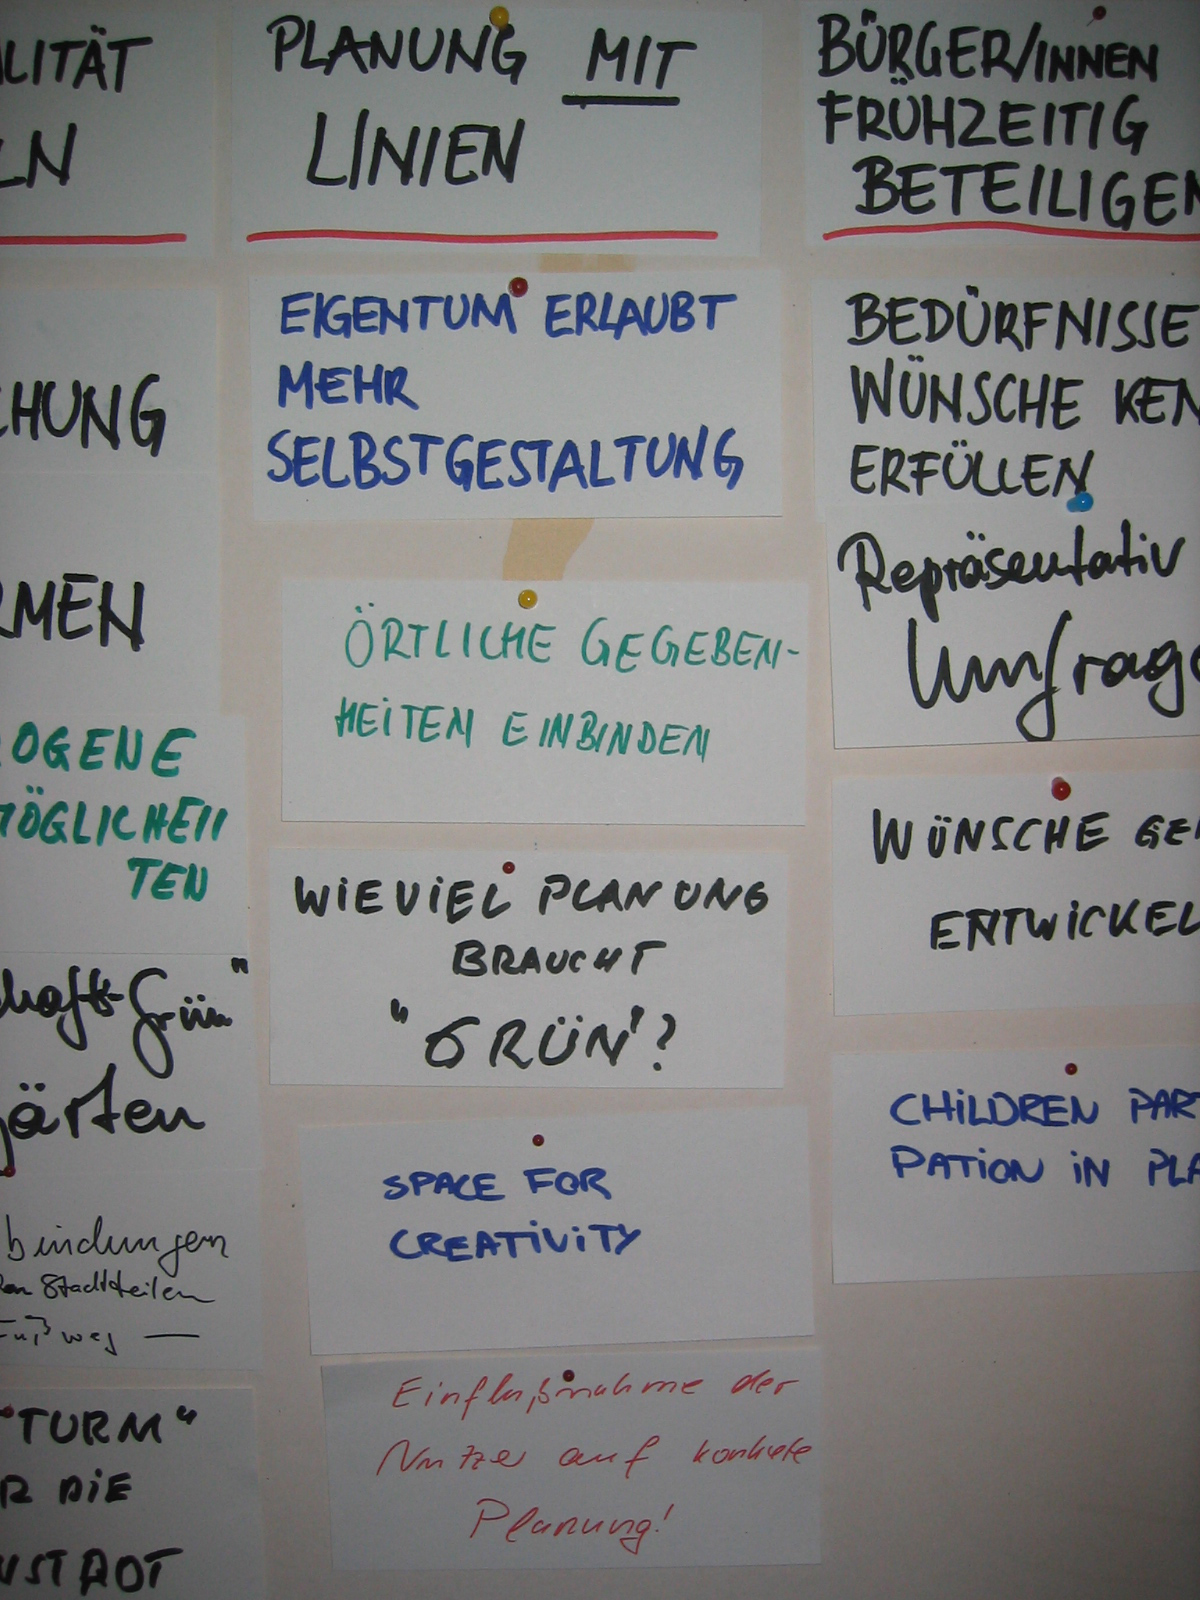 LITÄT
LN
CHUNG
RMEN
OGENE
MÖGLICHEIT
TEN
chafts-Grün"
gärten
bindungen
den Stadtteilen
Fußweg —
"TURM"
R DIE
NSTADT
PLANUNG MIT
LINIEN
EIGENTUM ERLAUBT
MEHR
SELBSTGESTALTUNG
ÖRTLICHE GEGEBEN-
HEITEN EINBINDEN
WIEVIEL PLANUNG
BRAUCHT
"GRÜN"?
SPACE FOR
CREATIVITY
Einflußnahme der
Nutzer auf konkrete
Planung!
BÜRGER/INNEN
FRÜHZEITIG
BETEILIGEN
BEDÜRFNISSE
WÜNSCHE KEN
ERFÜLLEN
Repräsentativ
Umfrage
WÜNSCHE GE
ENTWICKEL
CHILDREN PART
PATION IN PLA